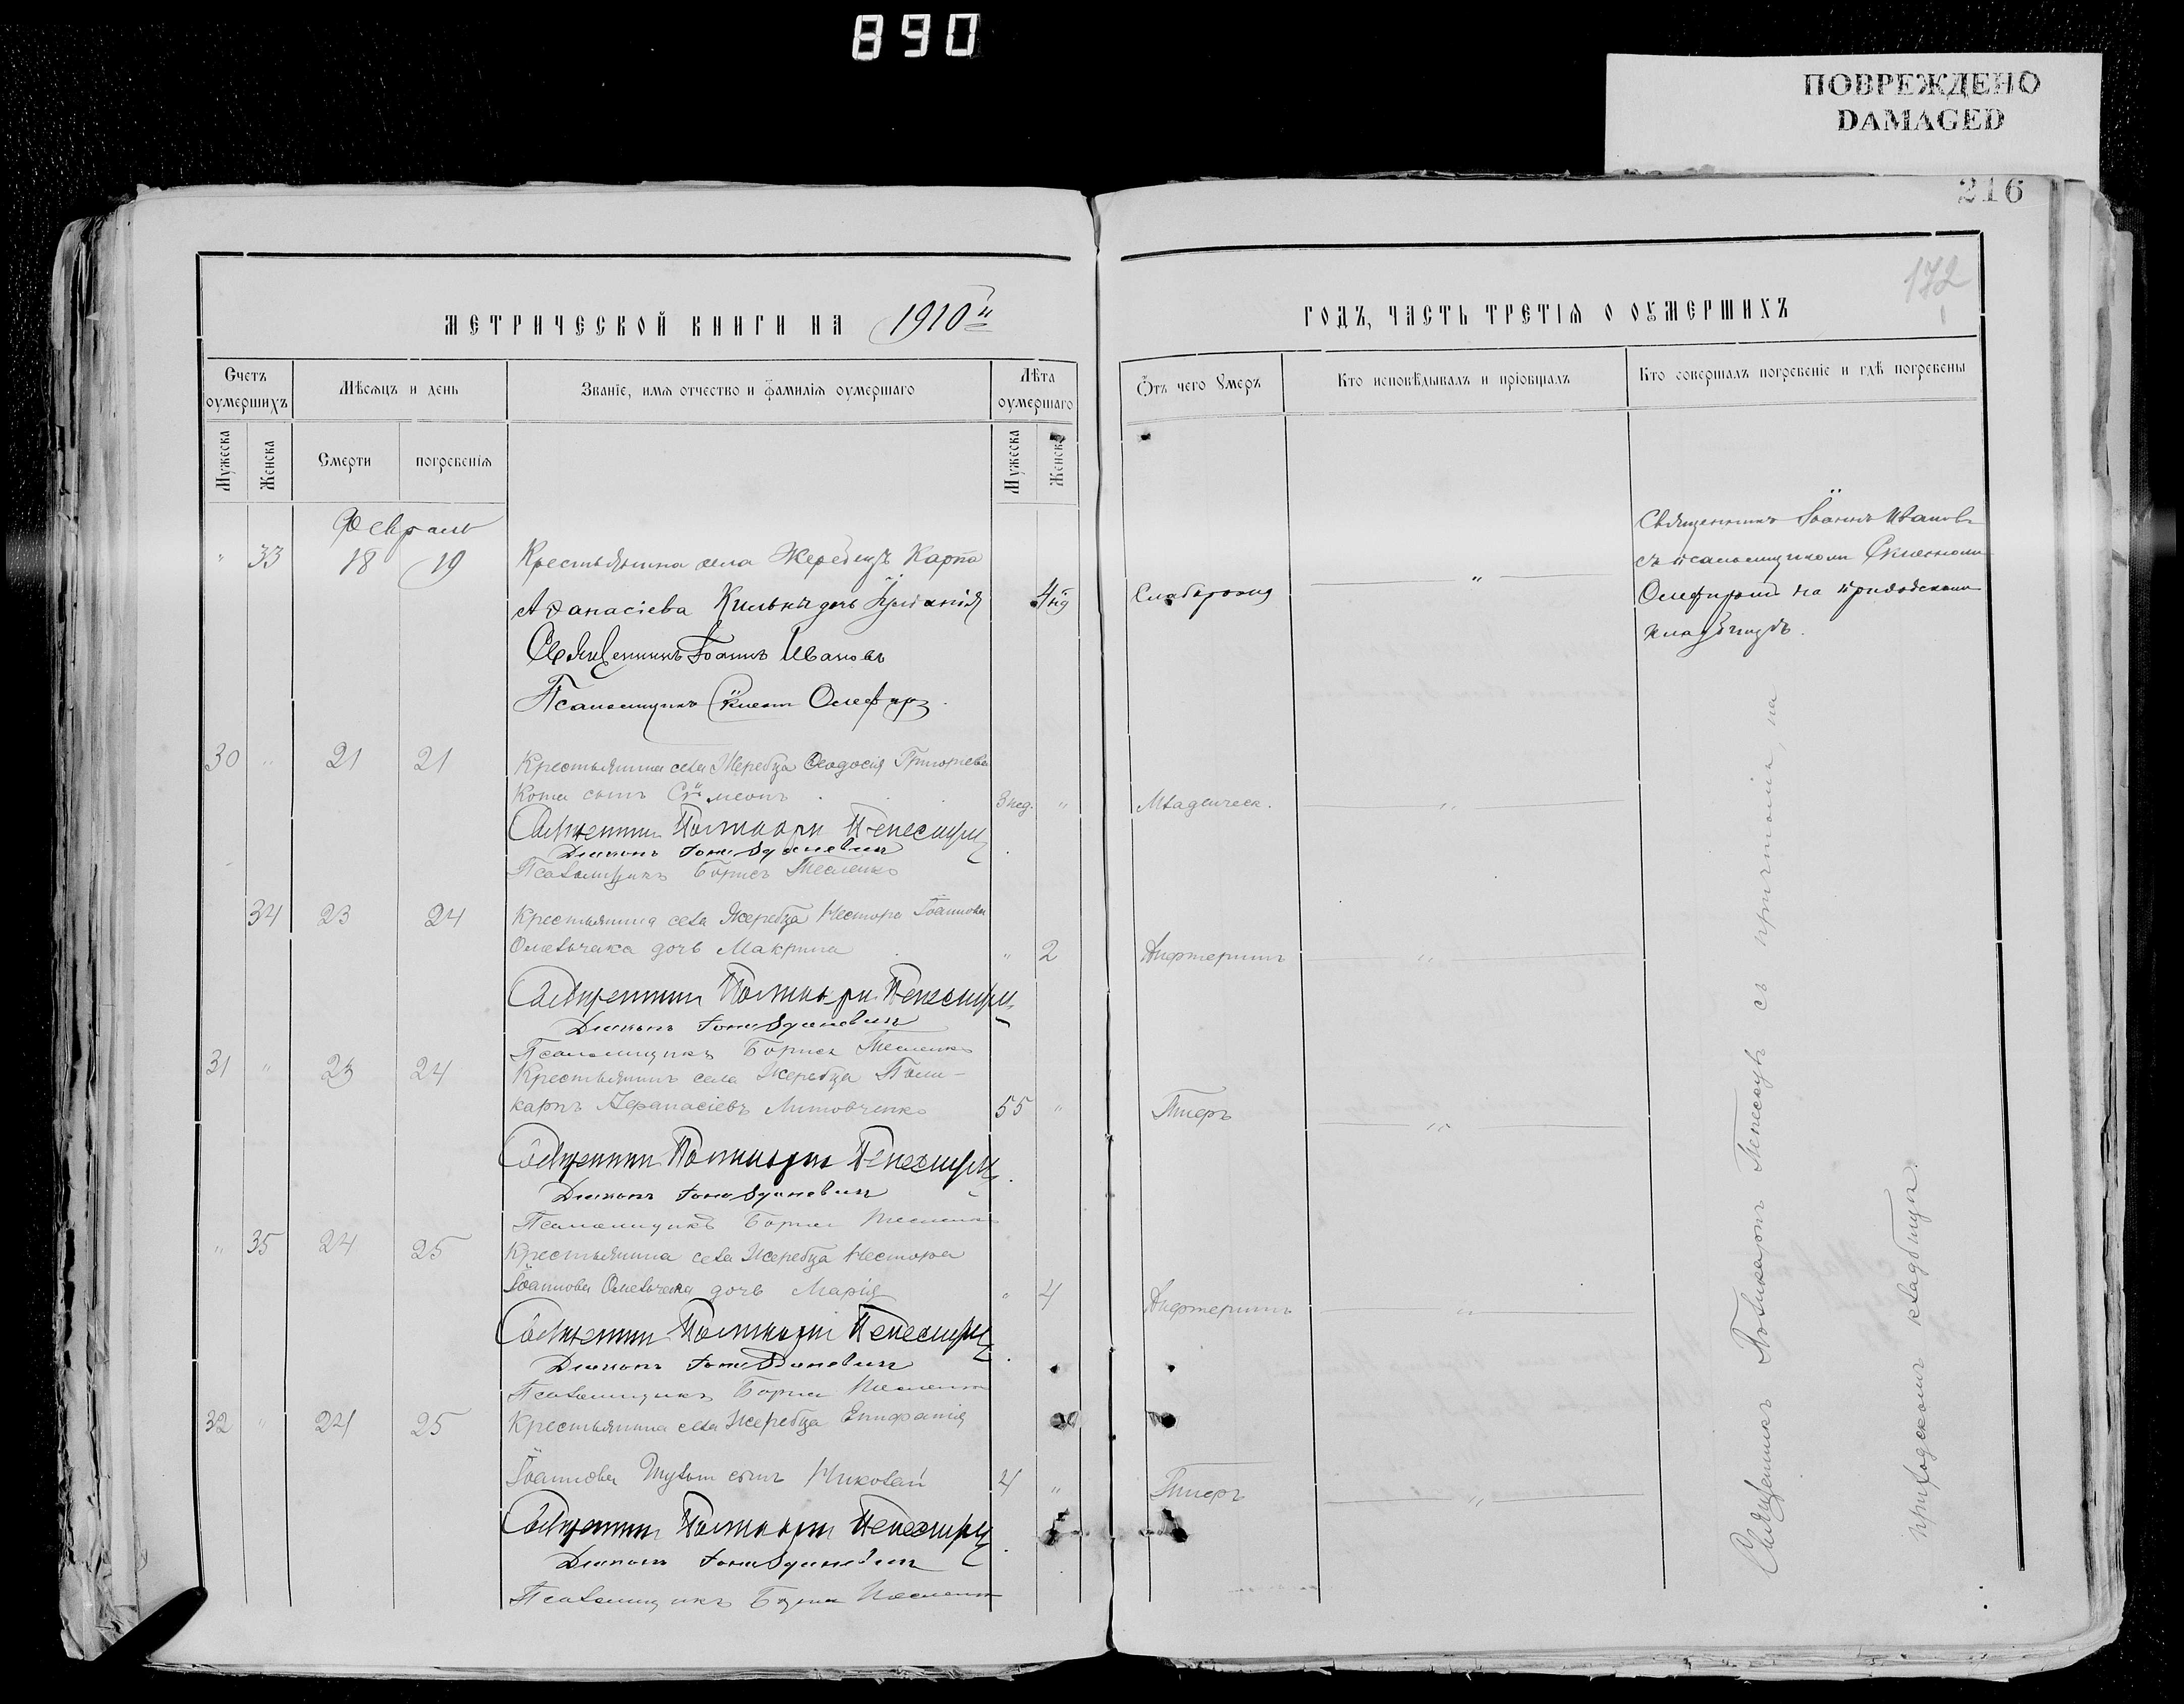 890
ПОВРЕЖДЕНО
DAMAGED
216
172
МЕТРИЧЕСКОЙ КНИГИ НА 1910й
ГОДЪ, ЧАСТЬ ТРЕТІЯ О ОУМЕРШИХЪ
Счетъ оумершихъ
Мѣсяцъ и день
Званіе, имя отчество и фамилія оумершаго
Лѣта оумершаго
Отъ чего Умеръ
Кто исповѣдывалъ и пріобщалъ
Кто совершалъ погребеніе и гдѣ погребены
Мужеска
Женска
Смерти
погребенія
Мужеска
Женска
Февраль
" 33 18 19 Крестьянина села Жеребецъ Карпа
Аѳанасіева дочь
4 нд
"
Священникъ Іоаннъ Ивановъ
съ псаломщикомъ
на приходскомъ
кладбищѣ.
Священникъ Іоаннъ Ивановъ
Псаломщикъ
30 " 21 21 Крестьянина села Жеребца Ѳеодосія Григорьева
Кота сынъ Сѵмеонъ 3 нед. " Младенческ. "
Священникъ Поликарпъ
Діаконъ
Псаломщикъ Борисъ Тесленко
34 23 24 Крестьянина села Жеребца Нестора Іоаннова
Омельчака дочь Макрина " 2 Дифтеритъ "
Священникъ Поликарпъ
Діаконъ
Псаломщикъ Борисъ Тесленко
31 " 23 24 Крестьянинъ села Жеребца Поли-
карпъ Афанасіевъ Литовченко 55 " Тифъ "
Священникъ Поликарпъ
Діаконъ
Псаломщикъ Борисъ Тесленко
" 35 24 25 Крестьянина села Жеребца Нестора
Іоаннова Омельчака дочь Марія " 4 Дифтеритъ "
Священникъ Поликарпъ
Діаконъ
Псаломщикъ Борисъ Тесленко
32 " 24 25 Крестьянина села Жеребца Епифанія
Іоаннова сынъ Николай 4 " Тифъ "
Священникъ Поликарпъ
Діаконъ
Псаломщикъ Борисъ Тесленко
Священникъ Поликарпъ съ причтомъ, на
приходскомъ кладбищѣ.